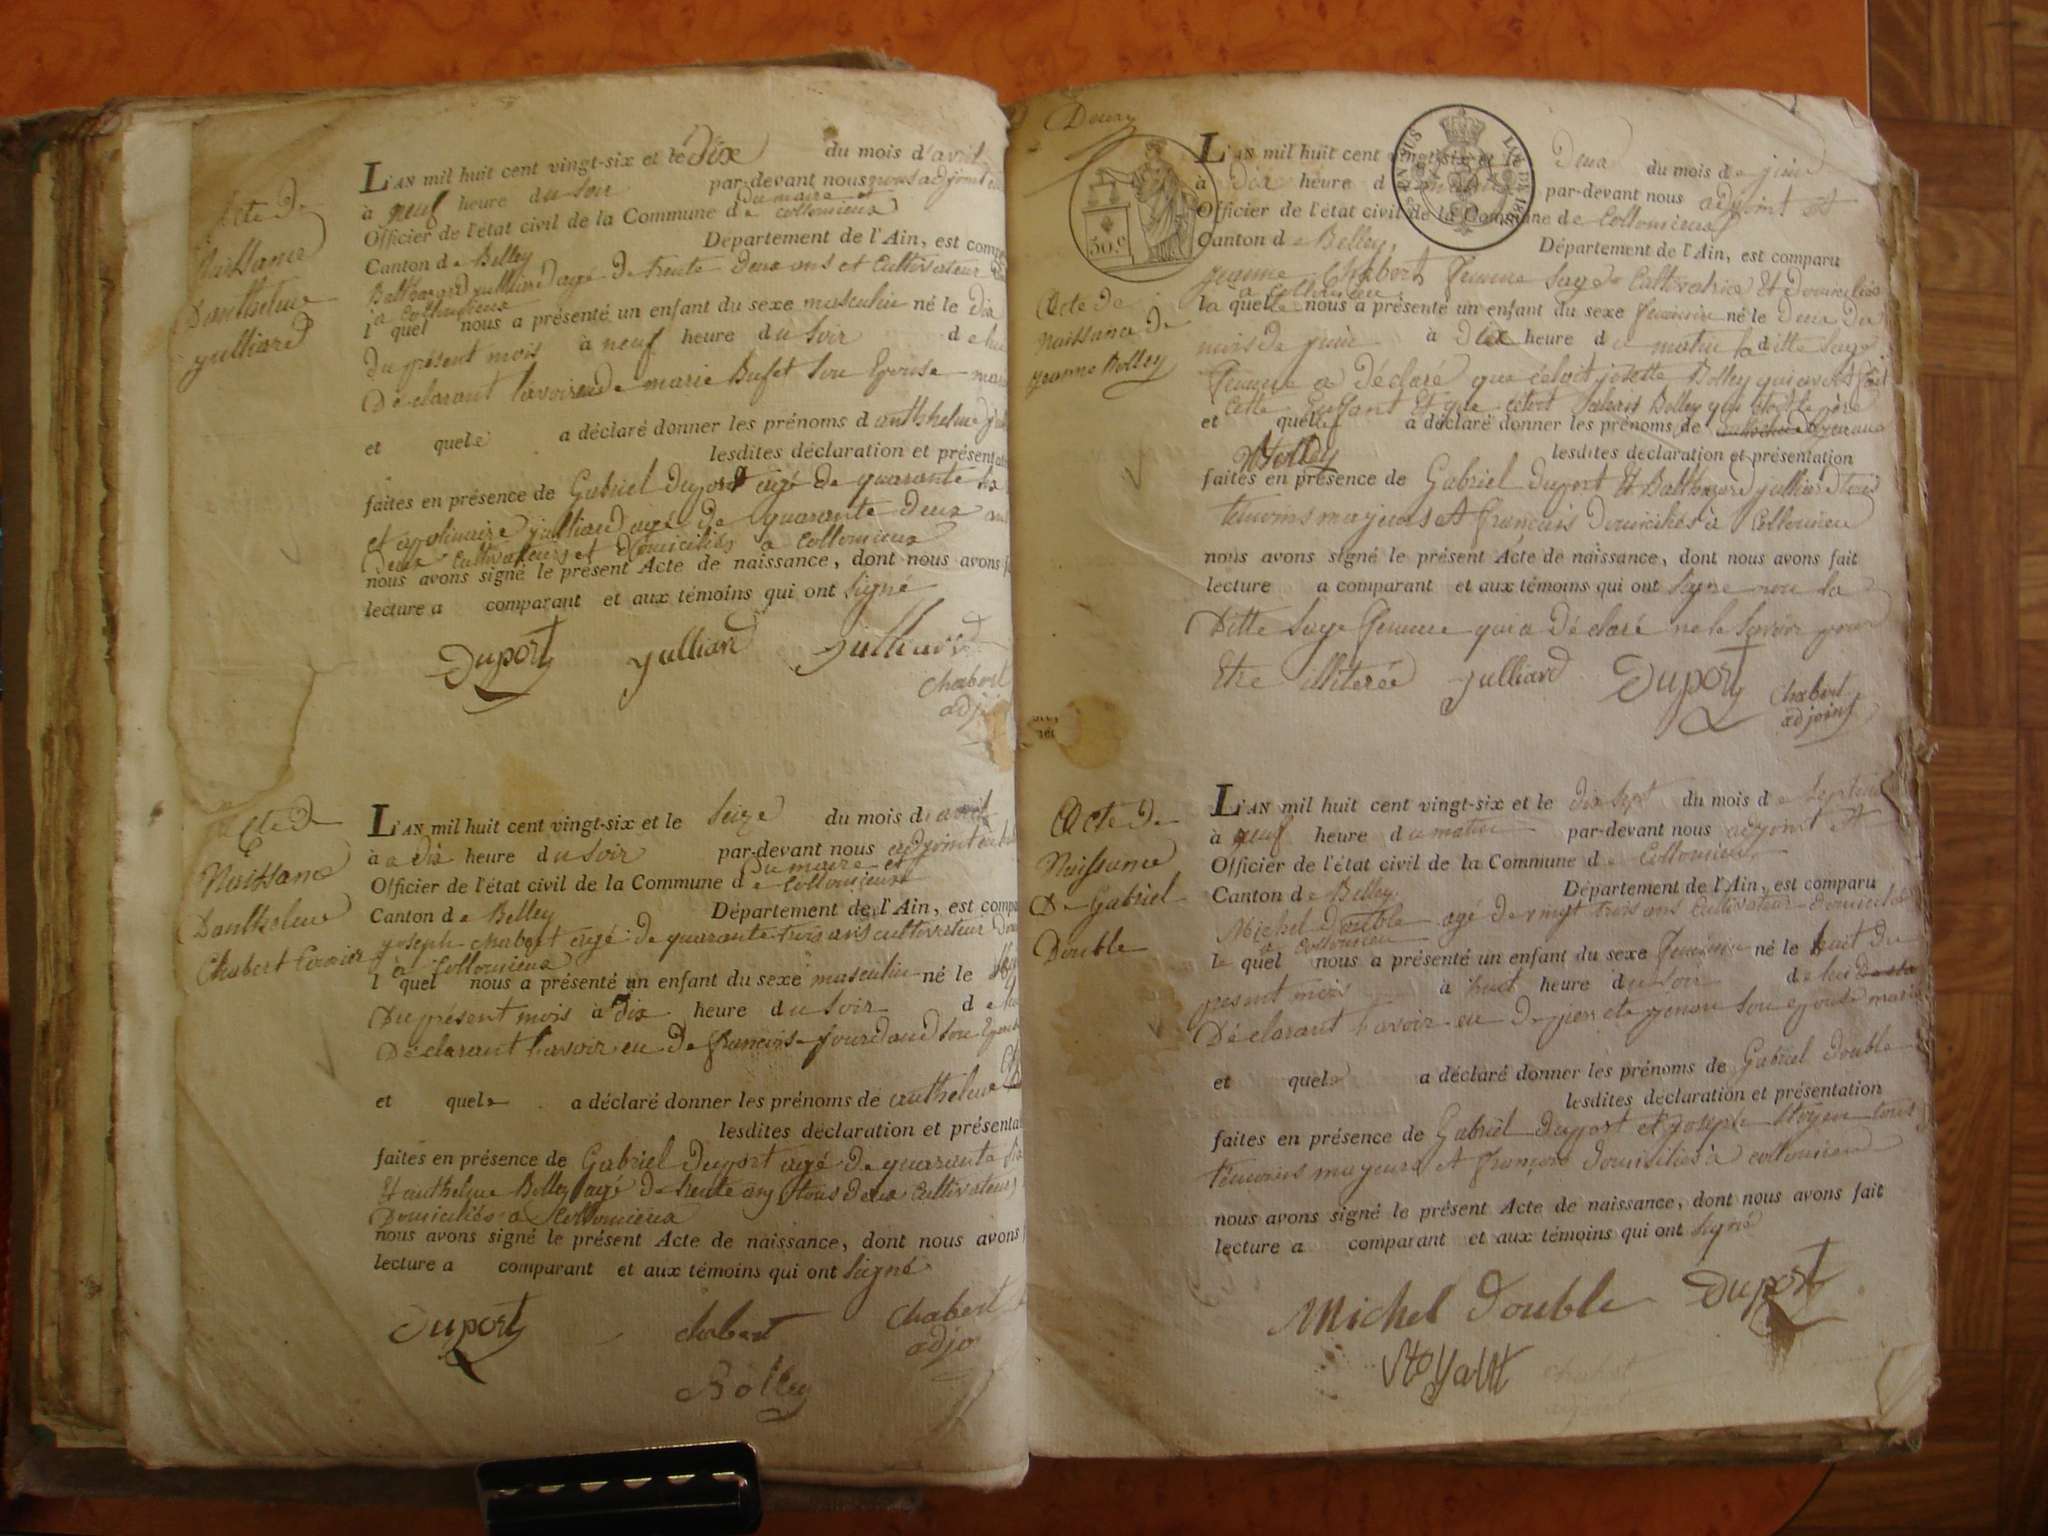 Acte de
Naissance
Danthelme
Julliard
L'AN mil huit cent vingt-six et le dix du mois d'avril
à neuf heure du soir par-devant nous adjoint
Officier de l'état civil de la Commune de Collomieux
du maire et
Canton de Belley Département de l'Ain, est comp
Balthazard julliard agé de trente deux ans et Cultivateur
à Collomieux
l quel nous a présenté un enfant du sexe masculin né le dix
du présent mois à neuf heure du soir de lui
Déclarant l'avoir eu de marie Bufet son Epouse
et quel a déclaré donner les prénoms d anthelme
lesdites déclaration et présentat
faites en présence de Gabriel Duport agé de quarante
et apolinaire julliard agé de quarante deux ans
Deux Cultivateurs et Domiciliés a Collomieux
nous avons signé le présent Acte de naissance, dont nous avons
lecture a comparant et aux témoins qui ont signé
Duport julliard julliard
Chabert
adj
Acte de
Naissance
Danthelme
Chabert
L'AN mil huit cent vingt-six et le seize du mois d avril
à dix heure du soir par-devant nous adjoint
Officier de l'état civil de la Commune de Collomieux
du maire et
Canton de Belley Département de l'Ain, est compa
joseph chabert agé de quarante trois ans cultivateur
à Collomieux
l quel nous a présenté un enfant du sexe masculin né le
Du présent mois à dix heure du soir de lui
Déclarant l'avoir eu de françoise jourdand son Epouse
et quel a déclaré donner les prénoms de anthelme
lesdites déclaration et présenta
faites en présence de Gabriel Duport agé de quarante
Et anthelme Bolley agé de trente ans tous deux Cultivateurs
Domiciliés a Collomieux
nous avons signé le présent Acte de naissance, dont nous avons
lecture a comparant et aux témoins qui ont signé
Duport chabert Chabert
adjo
Bolley
50.c
L'AN mil huit cent vingt-six et le Deux du mois de juin
à Dix heure d par-devant nous adjoint et
Officier de l'état civil de la Commune de Collomieux
Canton de Belley, Département de l'Ain, est comparu
jeanne Chabert femme sage Cultivatrice Et Domiciliée
a Collomieu
la quelle nous a présenté un enfant du sexe feminin né le Deux du
mois de juin à Dix heure du matin la ditte sage
Acte de
Naissance de
jeanne Bolley
femme a déclaré que c'étoit josette Bolley qui avoit fait
cette Enfant Et que c'étoit Bolley qui étoit le père
et quelle a déclaré donner les prénoms de jeanne
Bolley lesdites déclaration et présentation
faites en présence de Gabriel Duport Et Balthazard julliard tous
témoins majeurs et français domiciliés à Collomieu
nous avons signé le présent Acte de naissance, dont nous avons fait
lecture a comparant et aux témoins qui ont signé non la
Ditte Sage femme qui a déclaré ne le savoir pour
Etre illiterée julliard Duport Chabert
adjoint
Acte de
Naissance
De Gabriel
Double
L'AN mil huit cent vingt-six et le dix sept du mois de
à neuf heure du matin par-devant nous adjoint et
Officier de l'état civil de la Commune de Collomieux
Canton de Belley Département de l'Ain, est comparu
Michel double agé de vingt trois ans cultivateur domicilié
a Collomieu
le quel nous a présenté un enfant du sexe feminin né le huit du
présent mois à huit heure du soir de lui
Déclarant l'avoir eu de pierrete genou son epouse
et quel a déclaré donner les prénoms de Gabriel double
lesdites déclaration et présentation
faites en présence de Gabriel Duport et joseph tous
témoins majeurs et français domiciliés à Collomieux
nous avons signé le présent Acte de naissance, dont nous avons fait
lecture a comparant et aux témoins qui ont signé
Michel double Duport